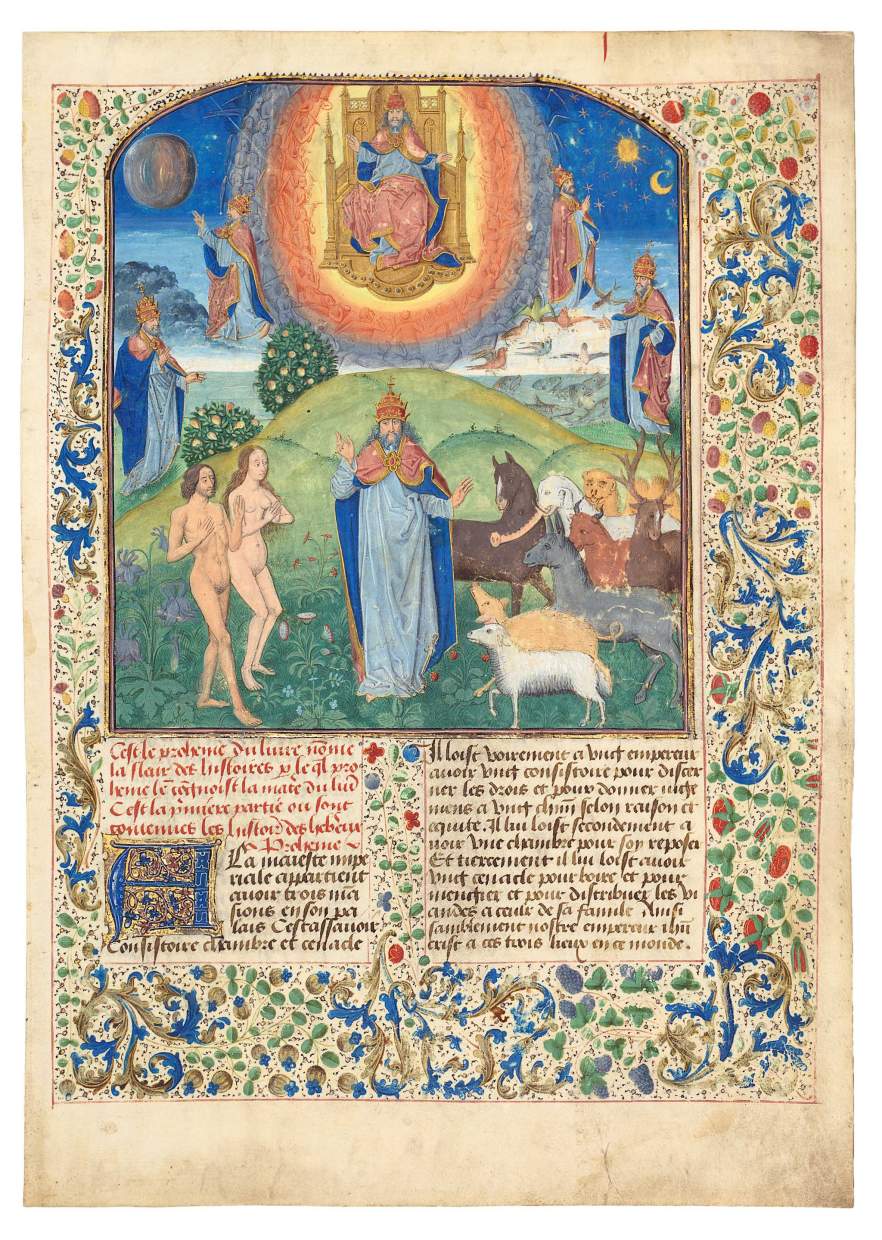 Cest le proheme du liure nōme
la fleur des histoires p le ql pro
heme lē cōgnoist la mate du liū
Cest la pmiere partie ou sont
contenues les histoir des hebreux
Proheme
A La maieste impe
riale appartient
auoir trois mā
sions en son pa
lais Cestassauoir
Consistoire chambre et cenacle
Il loist voirement a vng empereur
auoir vng consistoire pour discer
ner les drois et pour donner iuge
mens a vng chūn selon raison et
equite. Il lui loist secondement a
uoir vne chambre pour soy reposer
Et tiercement il lui loist auoir
vng cenacle pour boire et pour
mengier et pour distribuer les vi
andes a ceulx de sa famile Ainsi
samblement nostre empereur ihū
crist a ces trois lieux en ce monde.